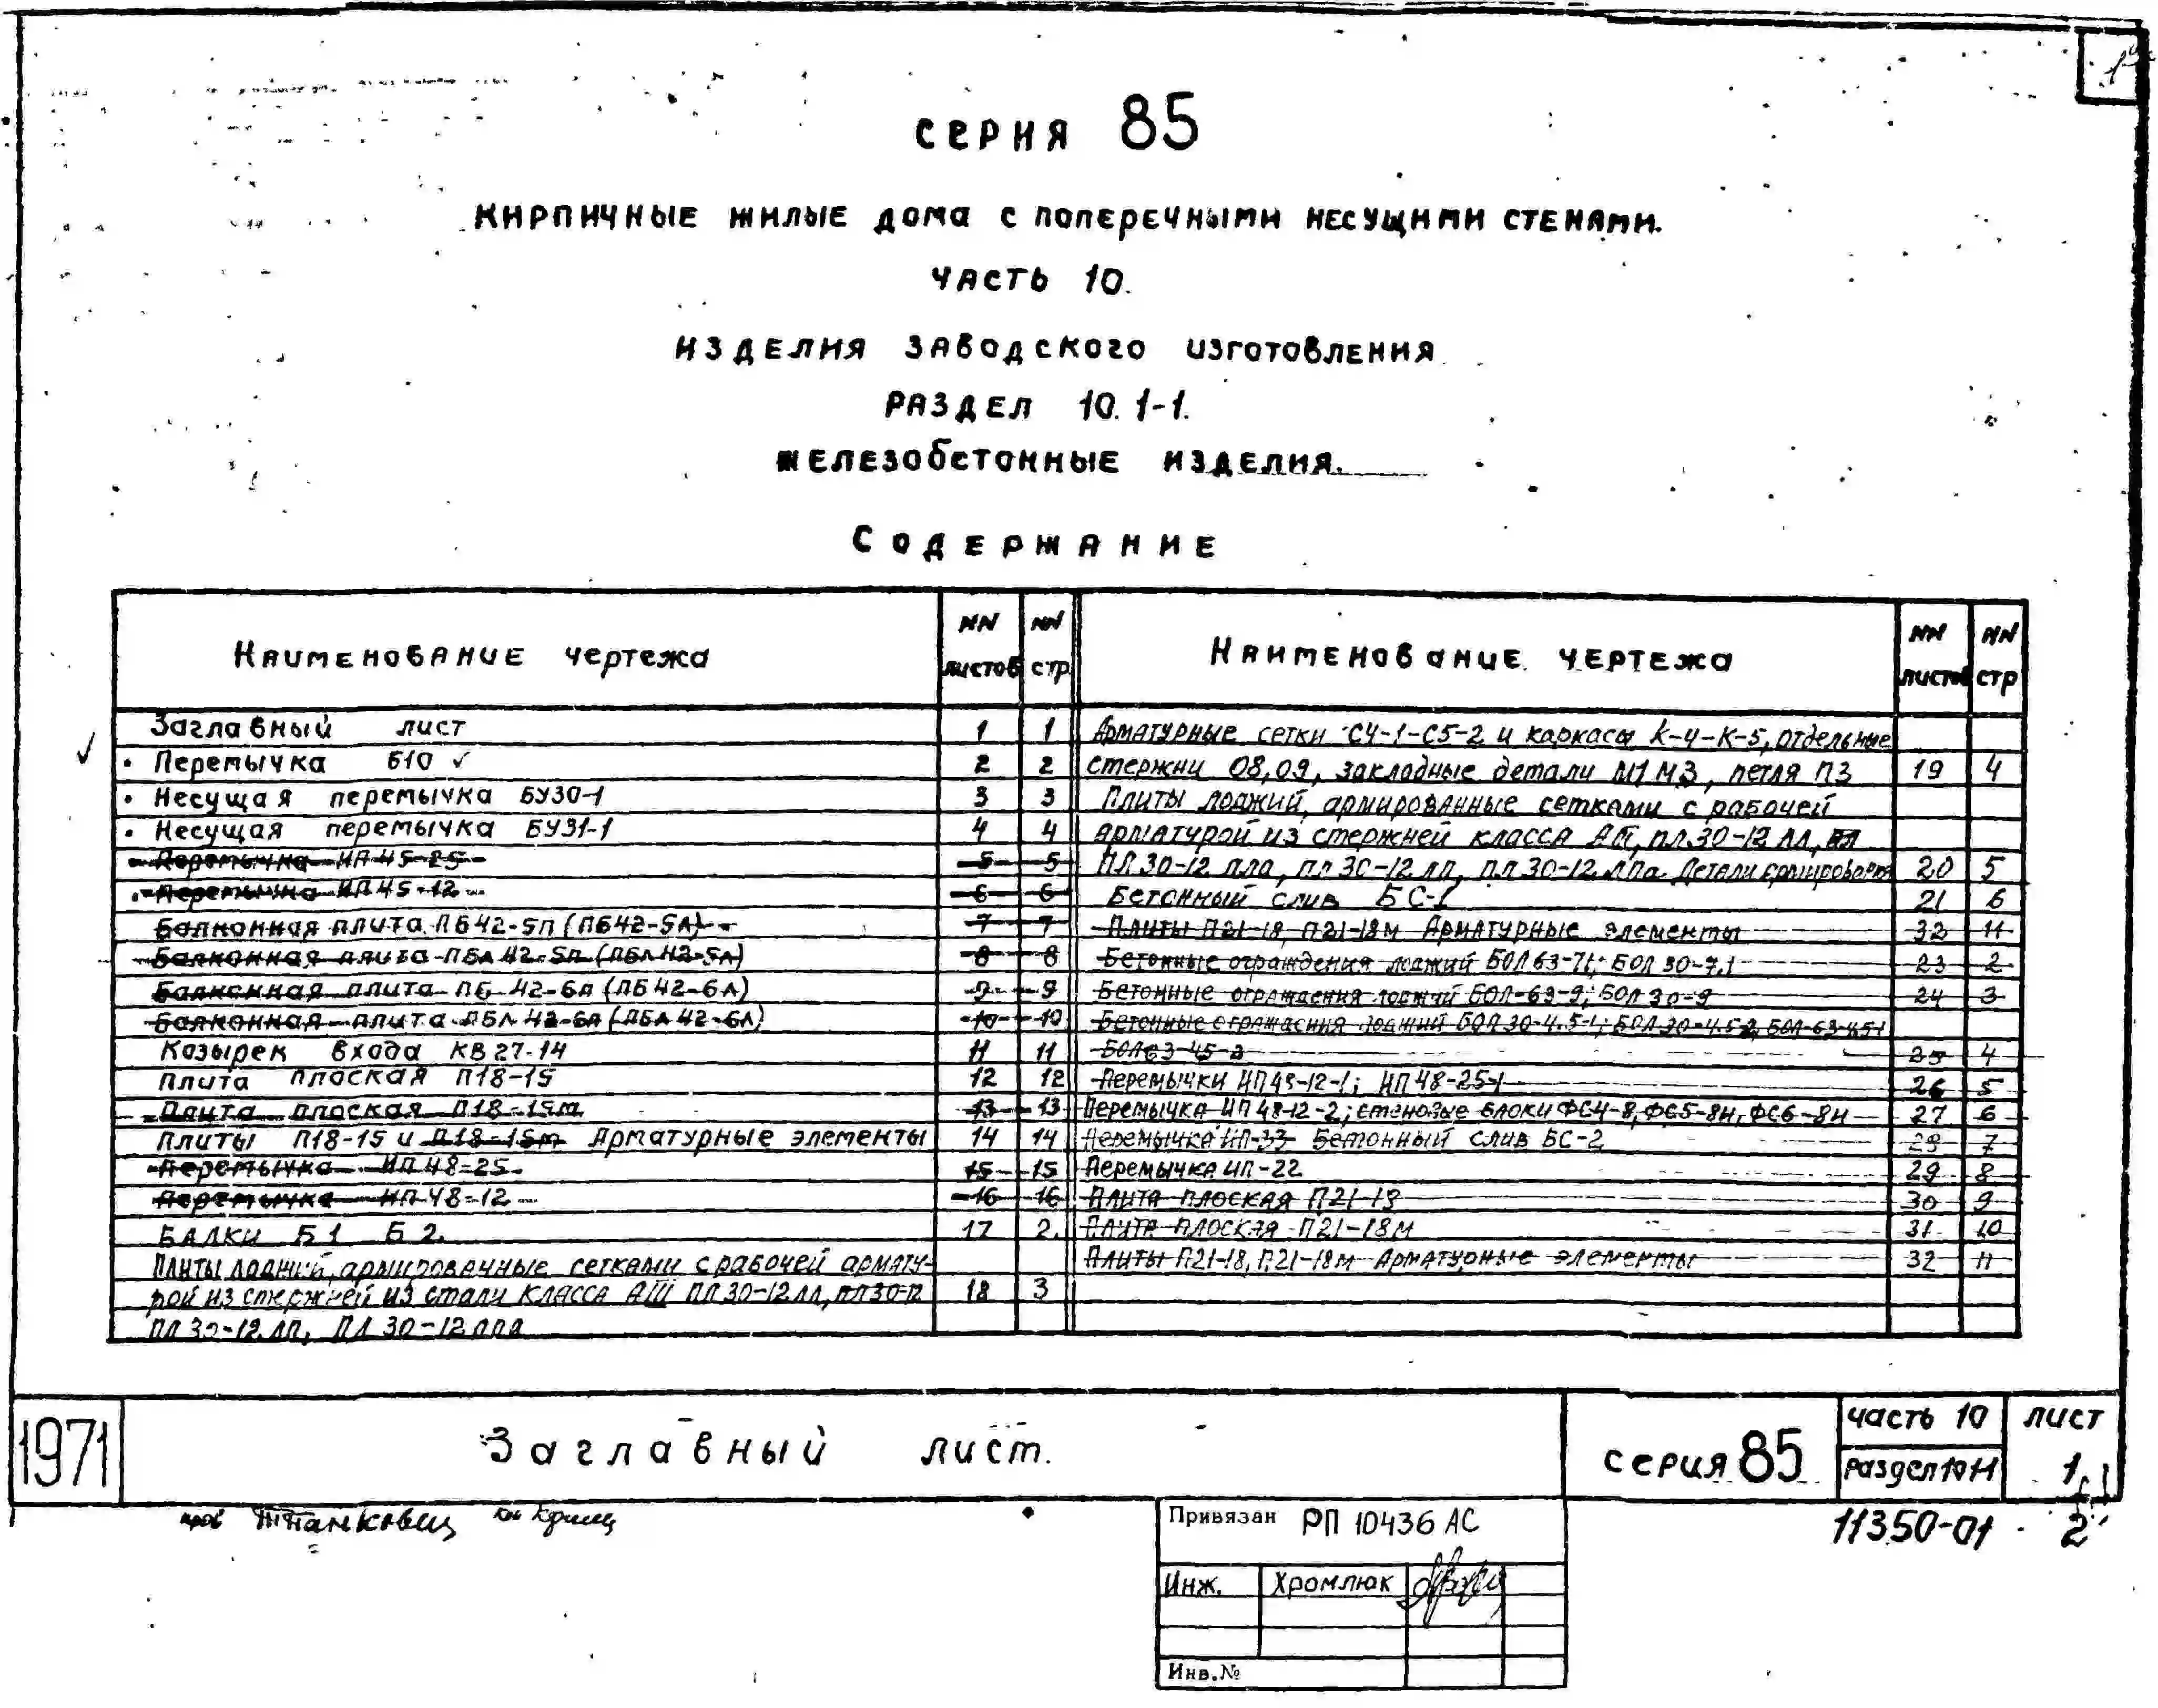 СЕРИЯ 85
КИРПИЧНЫЕ ЖИЛЫЕ ДОМА С ПОПЕРЕЧНЫМИ НЕСУЩИМИ СТЕНАМИ.
ЧАСТЬ 10.
ИЗДЕЛИЯ ЗАВОДСКОГО ИЗГОТОВЛЕНИЯ
РАЗДЕЛ 10.1-1.
ЖЕЛЕЗОБЕТОННЫЕ ИЗДЕЛИЯ.
СОДЕРЖАНИЕ
Наименование чертежа NN листов NN стр. Наименование чертежа NN листов NN стр
Заглавный лист 1 1 Арматурные сетки С4-1-С5-2 и каркасы К-4-К-5, отдельные
Перемычка Б10 2 2 стержни 08,09, закладные детали М1 М3, петля П3 19 4
Несущая перемычка БУ30-1 3 3 Плиты лоджий, армированные сетками с рабочей
Несущая перемычка БУ31-1 4 4 арматурой из стержней класса АШ, пл.30-12 лл,
Перемычка ИП 45-25 5 5 ПЛ 30-12 лла, пл 30-12 лп, пл 30-12 лпа. Детали армирования 20 5
Перемычка ИП 45-12 6 6 Бетонный слив БС-1 21 6
Балконная плита ПБ42-5п (ПБ42-5Л) 7 7 Плиты П21-18, П21-18м Арматурные элементы 32 11
Балконная плита ПБЛ 42-5п (ПБЛ 42-5Л) 8 8 Бетонные ограждения лоджий БОЛ 63-7.1; БОЛ 30-7.1 23 2
Балконная плита ПБ 42-6п (ПБ 42-6Л) 9 9 Бетонные ограждения лоджий БОЛ-63-9; БОЛ 30-9 24 3
Балконная плита ПБЛ 42-6п (ПБЛ 42-6Л) 10 10 Бетонные ограждения лоджий БОЛ 30-4.5-1; БОЛ 30-4.5-2, БОЛ-63-4.5-1
Козырек входа КВ 27-14 11 11 БОЛ 63-45-2 25 4
Плита плоская П18-15 12 12 Перемычки ИП 48-12-1; ИП 48-25-1 26 5
Плита плоская П18-15м 13 13 Перемычка ИП 48-12-2; стеновые блоки ФС4-8, ФС5-8н, ФС6-8н 27 6
Плиты П18-15 и П18-15м Арматурные элементы 14 14 Перемычка ИП-33 Бетонный слив БС-2 28 7
Перемычка ИП 48-25 15 15 Перемычка ИП-22 29 8
Перемычка ИП 48-12 16 16 Плита плоская П21-18 30 9
БАЛКИ Б1 Б2. 17 2. Плита плоская П21-18м 31 10
Плиты лоджий, армированные сетками с рабочей армату- Плиты П21-18, П21-18м Арматурные элементы 32 11
рой из стержней из стали класса АШ ПЛ 30-12 лл, пл 30-12 18 3
ПЛ 30-12 лп, ПЛ 30-12 лпа
1971 Заглавный лист. серия 85 часть 10 лист
раздел 10.1-1 1
11350-01 2
Привязан РП 10436 АС
Инж. Хромлюк
Инв.№